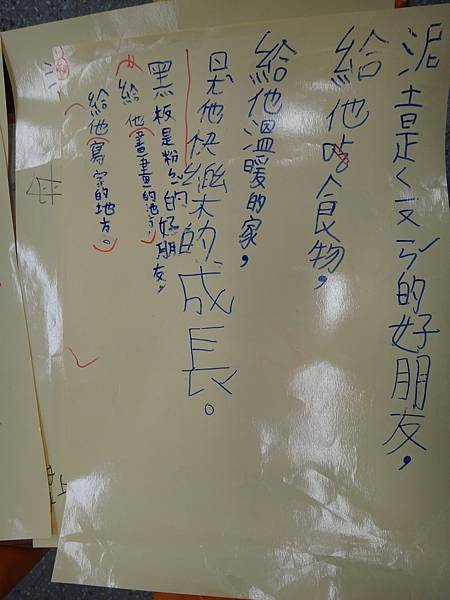 泥土是ㄑㄧㄡㄧㄣˇ的好朋友，
給他吃食物，
給他溫暖的家，
他快樂的成長。
黑板是粉的好朋友，
給他畫畫的地方，
給他寫字的地方。